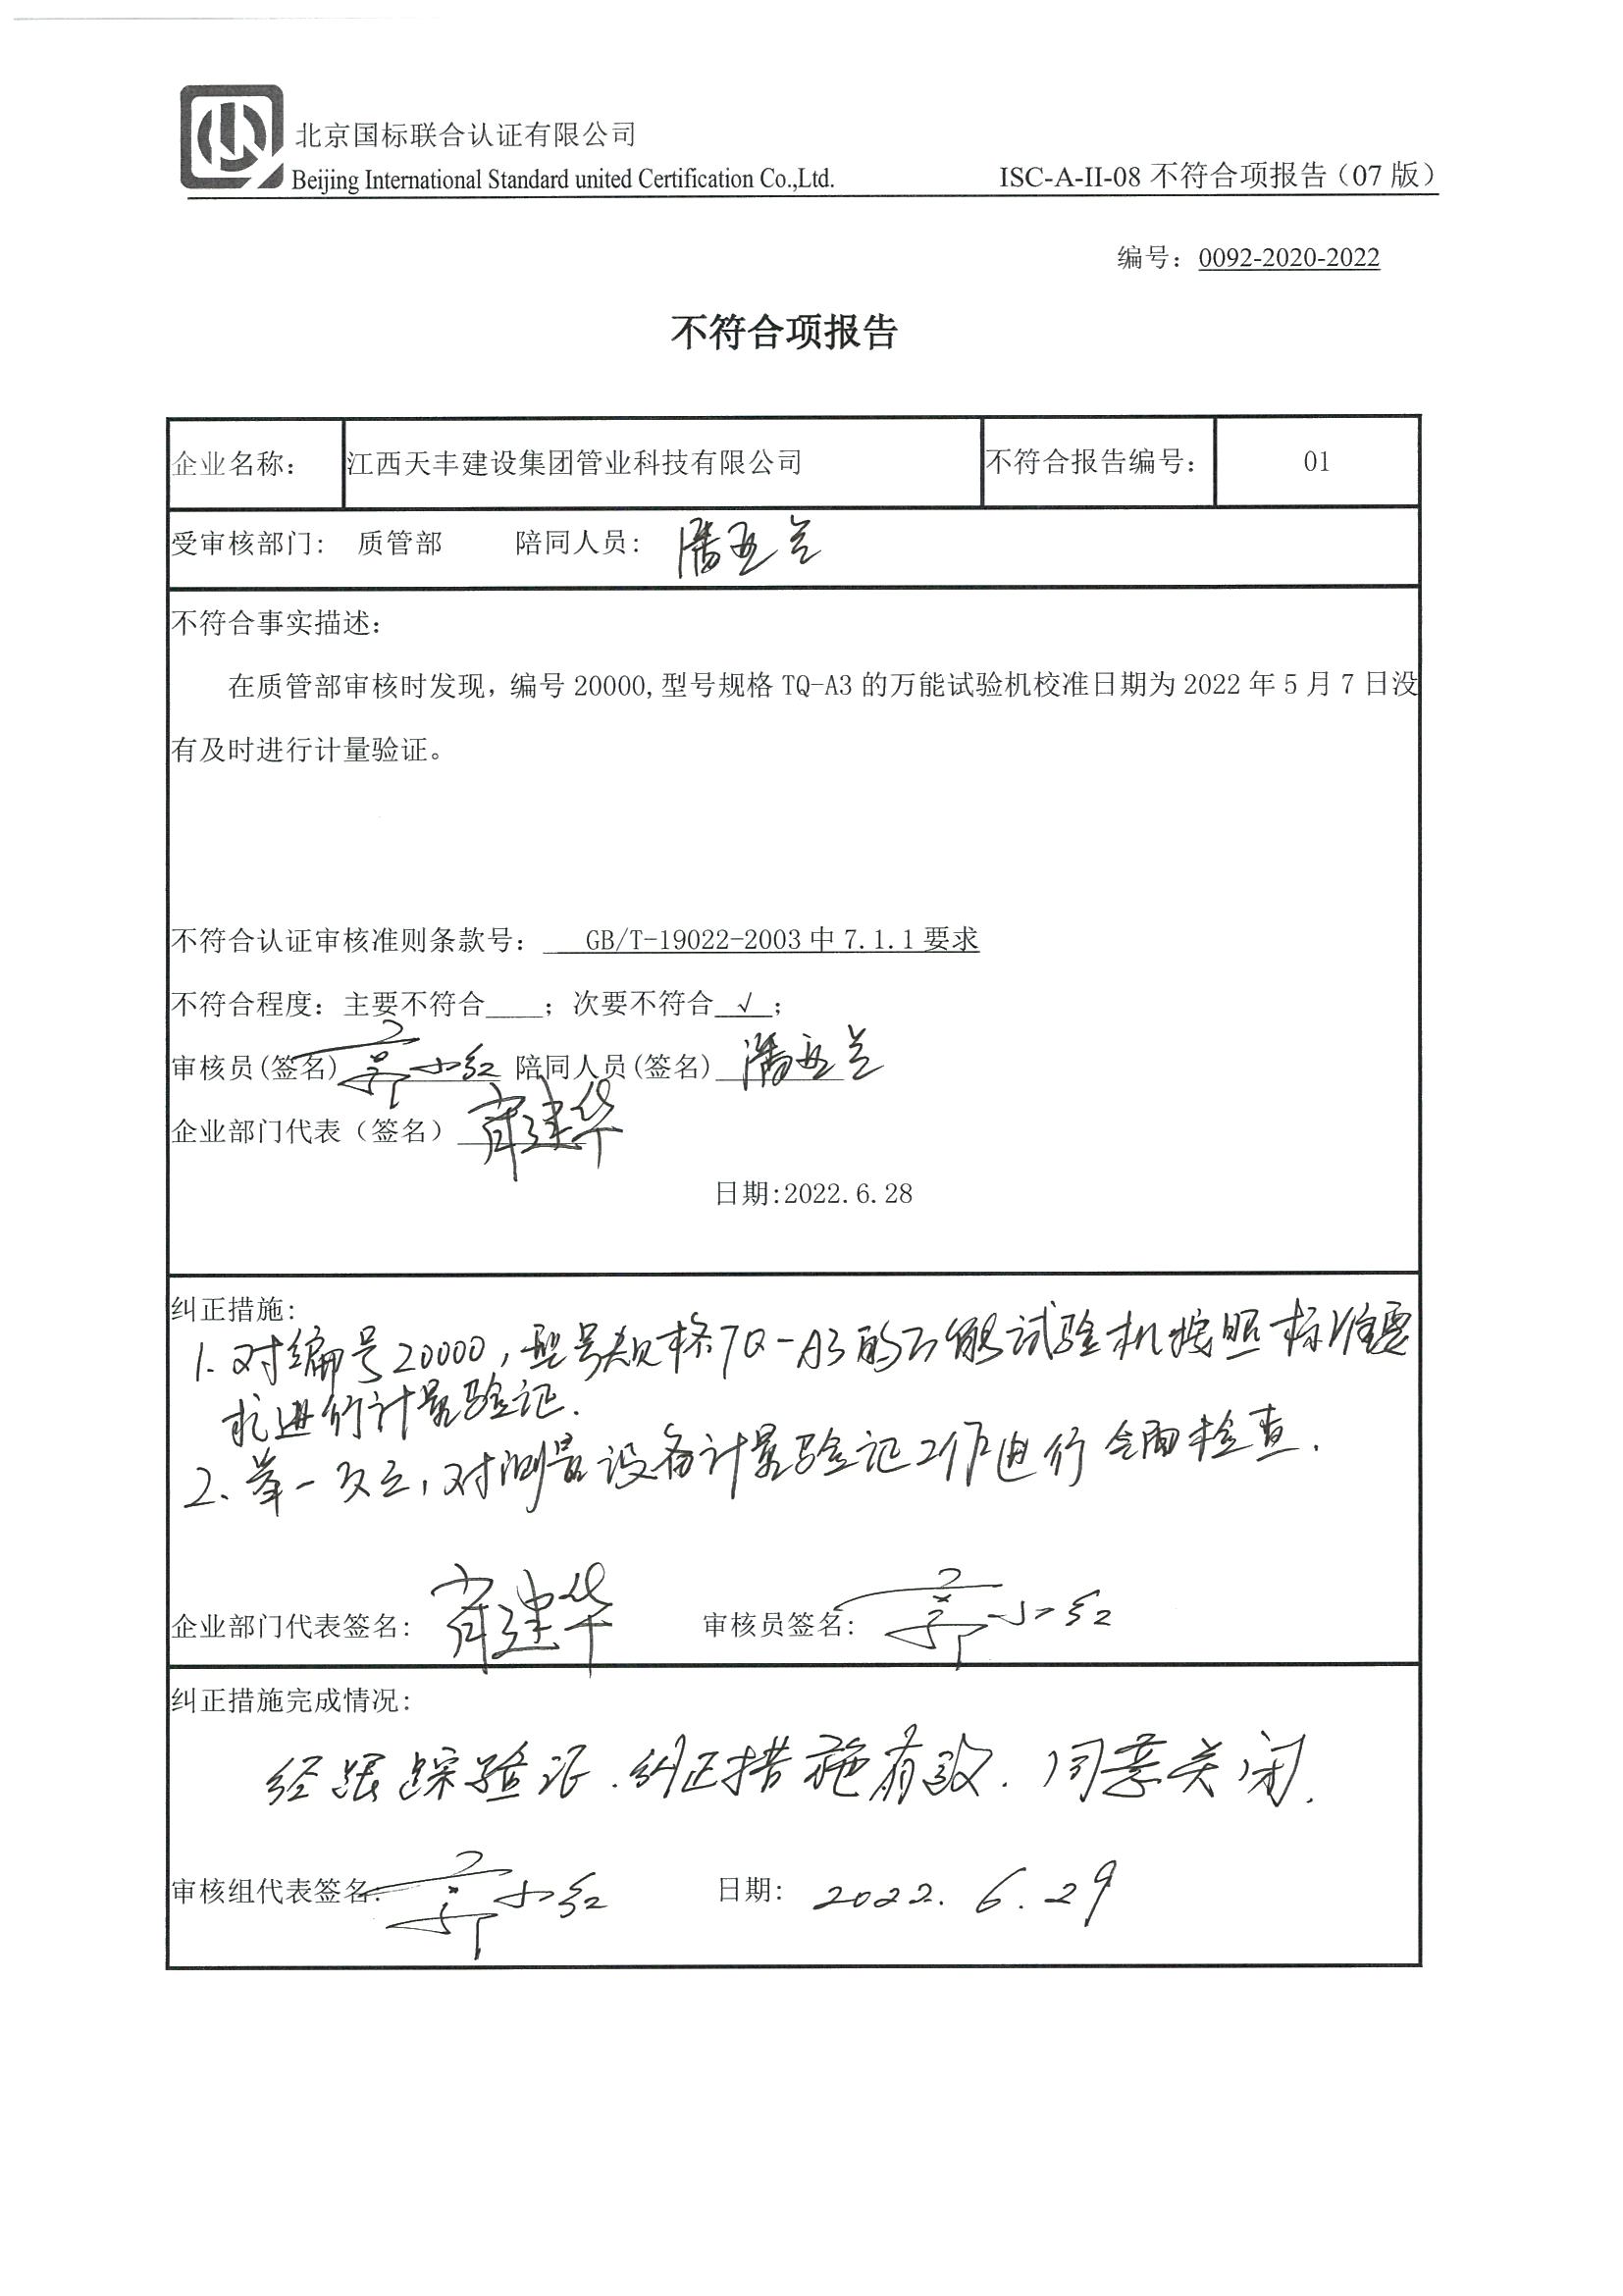 北京国标联合认证有限公司
Beijing International Standard united Certification Co.,Ltd. ISC-A-II-08 不符合项报告（07 版）
编号：0092-2020-2022
不符合项报告
企业名称： 江西天丰建设集团管业科技有限公司 不符合报告编号： 01
受审核部门： 质管部 陪同人员：
不符合事实描述：
在质管部审核时发现，编号 20000,型号规格 TQ-A3 的万能试验机校准日期为 2022 年 5 月 7 日没
有及时进行计量验证。
不符合认证审核准则条款号： GB/T-19022-2003 中 7.1.1 要求
不符合程度：主要不符合____；次要不符合 √ ；
审核员(签名) 小红 陪同人员(签名)
企业部门代表（签名） 建华
日期:2022.6.28
纠正措施：
1. 对编号20000，型号规格TQ-A3的万能试验机按照标准要
求进行计量验证.
2、举一反三，对测量设备计量验证工作进行全面检查.
企业部门代表签名： 建华 审核员签名： 小红
纠正措施完成情况：
经跟踪验证.纠正措施有效.同意关闭.
审核组代表签名： 小红 日期： 2022.6.29